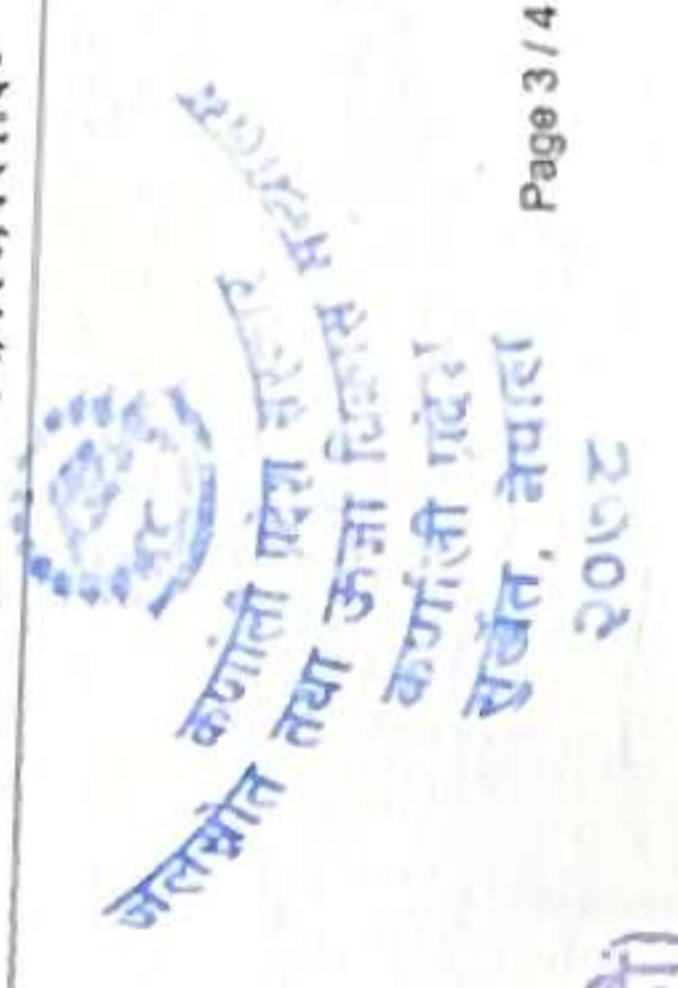 कर्णाली प्रदेश सरकार
जलस्रोत तथा ऊर्जा विकास मन्त्रालय
कर्णाली प्रदेश
सुर्खेत, नेपाल
२०७८
Page 3 / 4